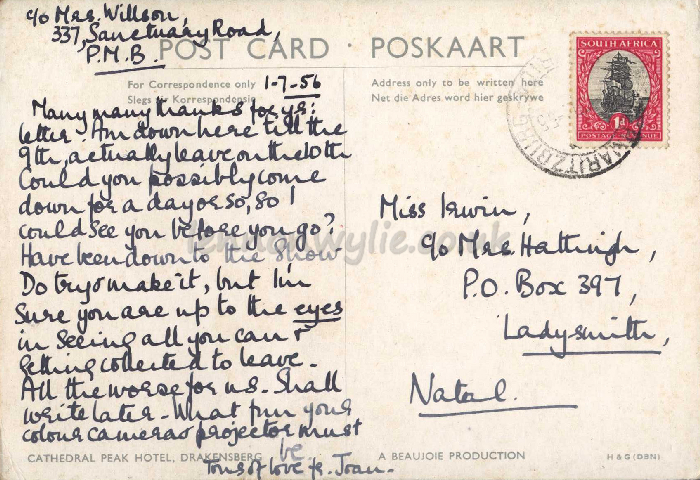 c/o Mrs. Willson,
337, Sanctuary Road,
P.M.B.
POST CARD · POSKAART
For Correspondence only
Slegs vir Korrespondensie
1-7-56
Address only to be written here
Net die Adres word hier geskrywe
SOUTH AFRICA
1d
POSTAGE
Many many thanks for yr:
letter. Am down here till the
9th, actually leave on the 10th
Could you possibly come
down for a day or so, so I
could see you before you go?
Have been down to the Show.
Do try & make it, but I'm
Sure you are up to the eyes
in seeing all you can &
getting collected to leave.
All the worse for us. Shall
write later. What fun your
colour camera & projector must
be.
Tons of love fr. Joan.
Miss Irwin,
c/o Mrs. Hattingh,
P.O. Box 397,
Ladysmith,
Natal.
CATHEDRAL PEAK HOTEL, DRAKENSBERG
A BEAUJOIE PRODUCTION
H & G (DBN)